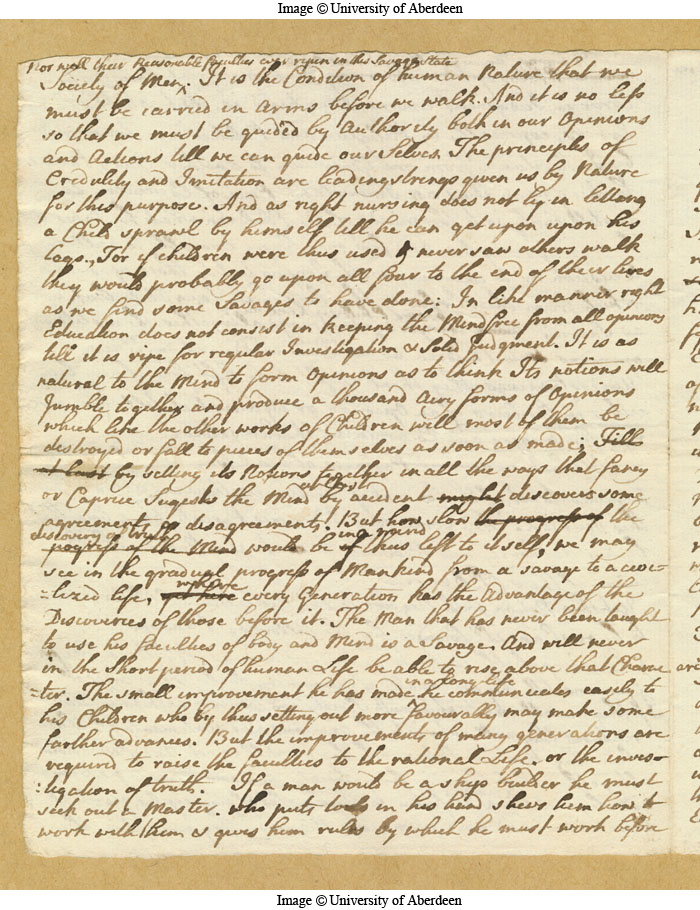 Image © University of Aberdeen
Nor will their Reasonable Faculties ever ripen in this Savage State
Society of Men. It is the Condition of human Nature that we
must be carried in Arms before we walk. And it is no less
so that we must be guided by Authority both in our Opinions
and Actions till we can guide our Selves. The principles of
Credulity and Imitation are leadingstrings given us by Nature
for this purpose. And as right nursing does not ly in letting
a Child sprawl by himself till he can get upon upon his
Legs., For if children were thus used & never saw others walk
they would probably go upon all four to the end of their lives
as we find some Savages to have done: In like manner right
Education does not consist in keeping the Mind free from all opinions
till it is ripe for regular Investigation & Solid Judgment. It is as
natural to the Mind to form Opinions as to think Its notions will
Jumble together and produce a thousand Airy forms of Opinions
which like the other works of Children will most of them be
destroyed or fall to pieces of themselves as soon as made; Till
at last by setting its Notions together in all the ways that fancy
or Caprice Sugests the Mind by accident might discovers some
at last
agreements or disagreements. But how slow the progress of the
discovery of truth in a mind
progress of the Mind would be if thus left to it self, we may
see in the gradual progress of Mankind from a savage to a civi-
-lized life, yet here every Generation has the Advantage of the
where
Discoveries of those before it. The Man that has never been taught
to use his faculties of body and Mind is a Savage. And will never
in the short period of human Life be able to rise above that Charac
-ter. The small improvement he has made he communicates easily to
in a long life
his Children who by thus setting out more favourably may make some
farther advances. But the improvements of many generations are
required to raise the faculties to the rational Life. or the inves-
-tigation of truth. If a man would be a ship builder he must
seek out a Master. who puts tools in his hand shews him how to
work with them & gives him rules by which he must work before
are
Image © University of Aberdeen